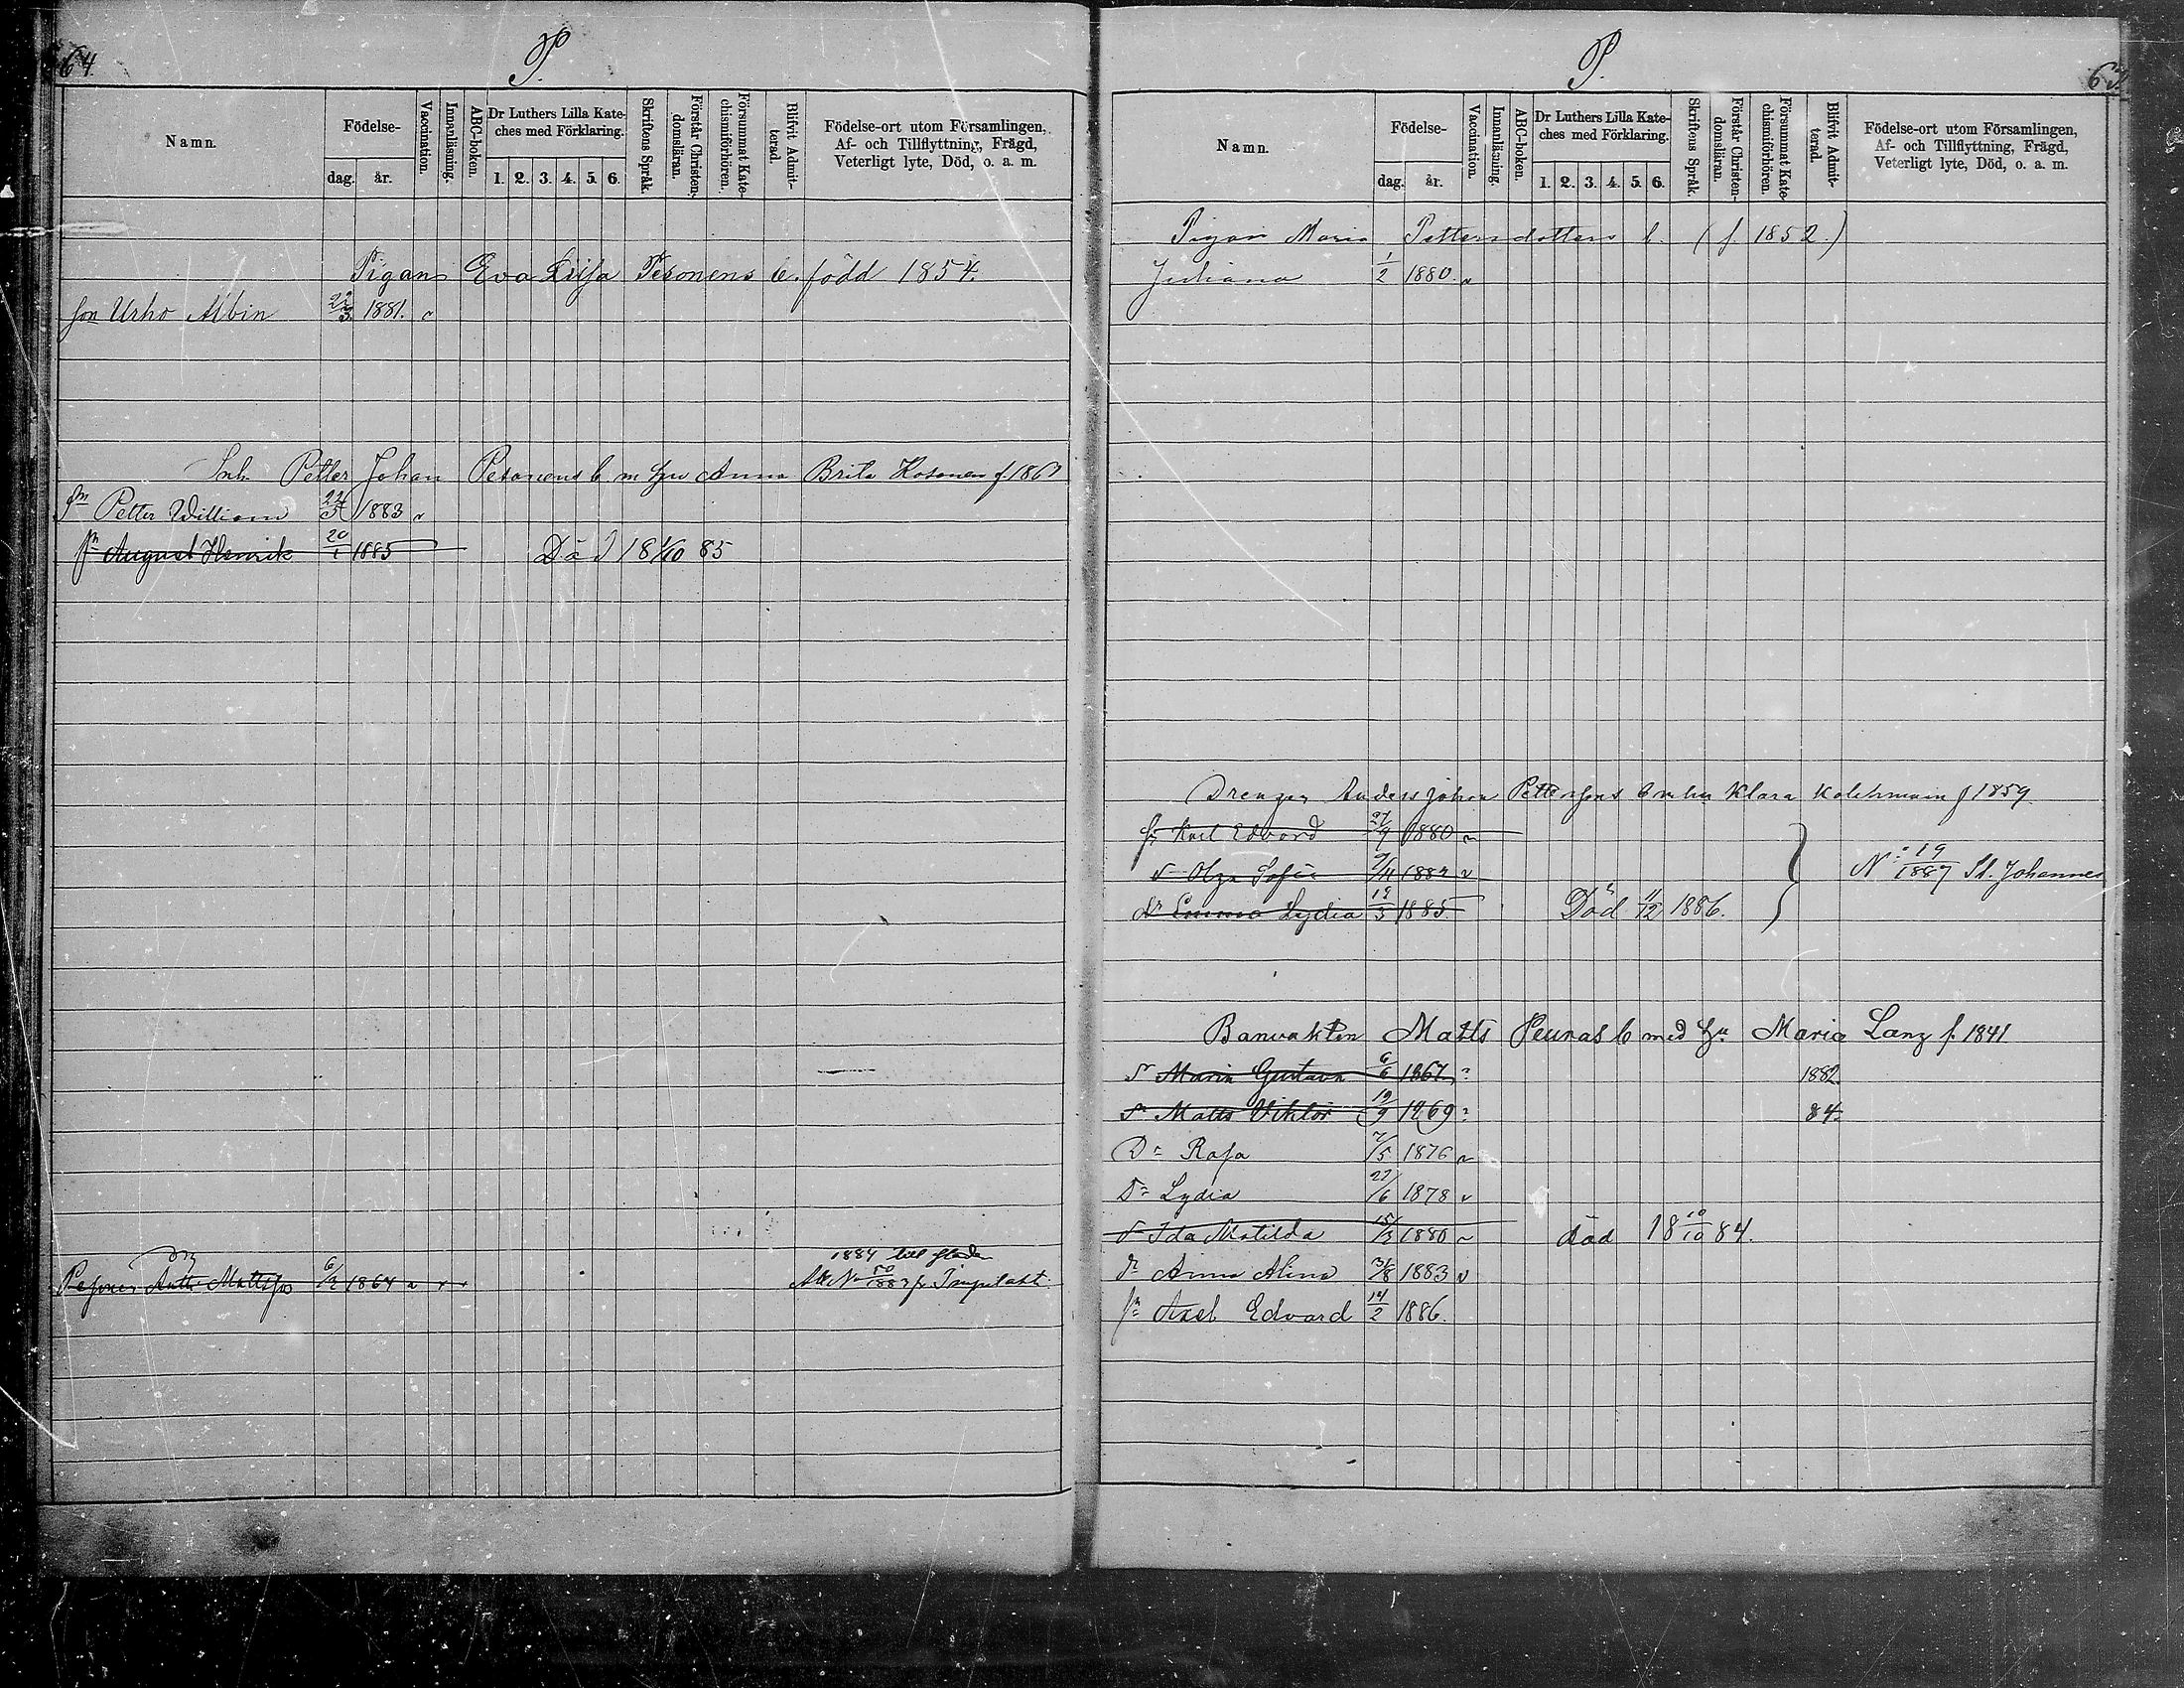 64.
P.
Namn.
Födelse-
dag.
år.
Vaccination.
Innanläsning.
ABC-boken.
Dr Luthers Lilla Kate-
ches med Förklaring.
1. 2. 3. 4. 5. 6.
Skriftens Språk.
Förstår Christen-
domsläran.
Försummat Kate-
chismiförhören.
Blifvit Admit-
terad.
Födelse-ort utom Församlingen,
Af- och Tillflyttning, Frägd,
Veterligt lyte, Död, o. a. m.
Pigans Eva Lisa Pesonens b. född 1854.
son Urho Albin 3. 1881. v
Inh. Petter Johan Pesonens b m hu Anna Brita Kosonen f. 186
sn Petter William 1883 v
sn August Henrik 20/1 1885 Död 18 1/10 85
Pesonen Antti Mattsson 1864 v + +
1884 till staden
Att. No 50/1883 fr Impilaks
P.
Namn.
Födelse-
dag.
år.
Vaccination.
Innanläsning.
ABC-boken.
Dr Luthers Lilla Kate-
ches med Förklaring.
1. 2. 3. 4. 5. 6.
Skriftens Språk.
Förstår Christen-
domsläran.
Försummat Kate-
chismiförhören.
Blifvit Admit-
terad.
Födelse-ort utom Församlingen,
Af- och Tillflyttning, Frägd,
Veterligt lyte, Död, o. a. m.
Pigan Maria Pettersdotters b. (f. 1852.)
Juliana 1/2 1880. v
Drengen Anders Johan Pettersons b m hu Klara Kolehmain f 1859
sn Karl Edvard 27/9 1880 v
Dr Olga Sofia 1882 v
No 19/1887 St. Johannes
Dr Emma Lydia 19/3 1885 Död 11/12 1886.
Banvakten Matts Peunas b med hu Maria Lanz f. 1841
Dr Maria Gustava 6/6 1867 1882
Sn Matts Viktor 19/9 1869 84.
Dr Rosa 7/5 1876 v
Dr Lydia 27/6 1878 v
Dr Ida Matilda 15/3 1880 v död 18 10/10 84.
Dr Anna Alina 31/8 1883 v
sn Axel Edvard 14/2 1886.